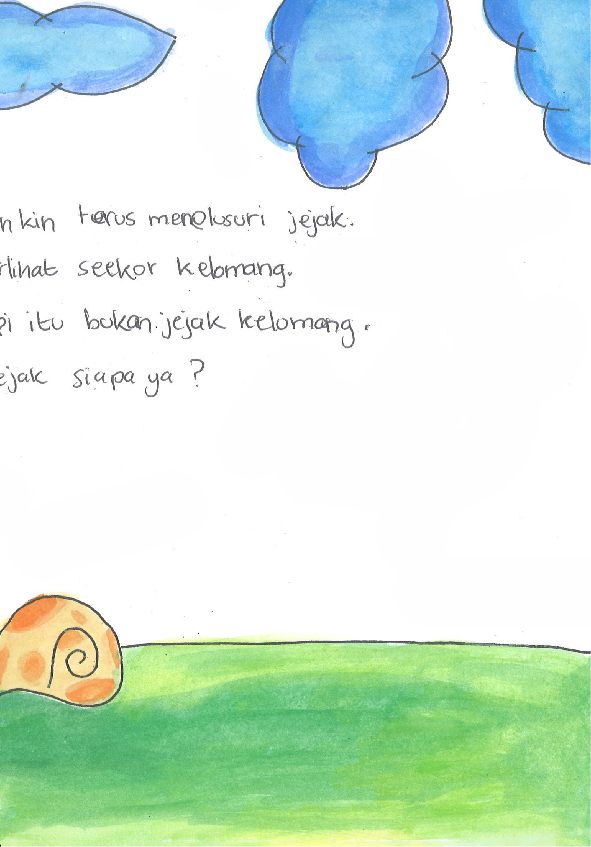 kin terus menelusuri jejak.
rlihat seekor kelomang.
pi itu bukan jejak kelomang.
ejak siapa ya ?